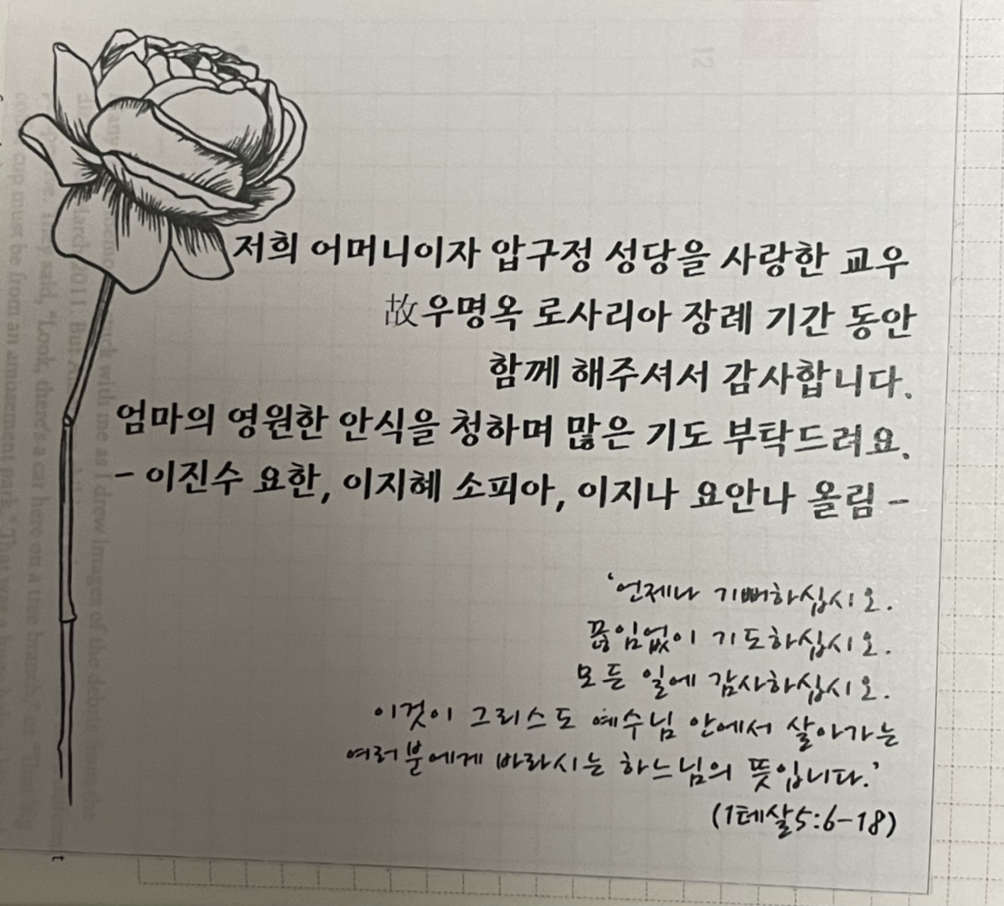 저희 어머니이자 압구정 성당을 사랑한 교우
故우명옥 로사리아 장례 기간 동안
함께 해주셔서 감사합니다.
엄마의 영원한 안식을 청하며 많은 기도 부탁드려요.
- 이진수 요한, 이지혜 소피아, 이지나 요안나 올림 -
'언제나 기뻐하십시오.
끊임없이 기도하십시오.
모든 일에 감사하십시오.
이것이 그리스도 예수님 안에서 살아가는
여러분에게 바라시는 하느님의 뜻입니다.'
(1테살5:6-18)